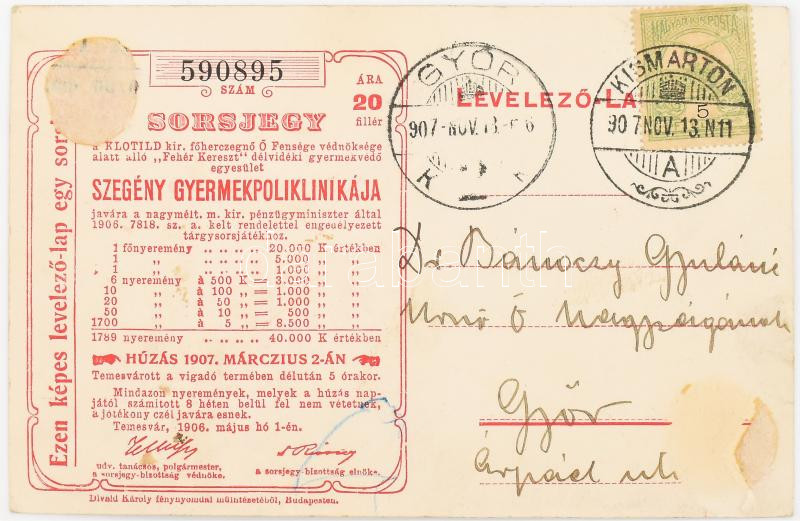 Ezen képes levelező-lap egy sorsj
590895
SZÁM
ÁRA
20
fillér
SORSJEGY
a KLOTILD kir. főherczegnő Ő Fensége védnöksége
alatt álló „Fehér Kereszt” délvidéki gyermekvédő
egyesület
SZEGÉNY GYERMEKPOLIKLINIKÁJA
javára a nagymélt. m. kir. pénzügyminiszter által
1906. 7818. sz. a. kelt rendelettel engedélyezett
tárgysorsjátékhoz.
1 főnyeremény .. .. .. .. 20.000 K értékben
1 „ .. .. .. .. 5.000 „ „
1 „ .. .. .. .. 1.000 „ „
6 nyeremény à 500 K = 3.000 „ „
10 „ à 100 „ = 1.000 „ „
20 „ à 50 „ = 1.000 „ „
50 „ à 10 „ = 500 „ „
1700 „ à 5 „ = 8.500 „ „
1789 nyeremény .. .. .. .. 40.000 K értékben
HÚZÁS 1907. MÁRCZIUS 2-ÁN
Temesvárott a vigadó termében délután 5 órakor.
Mindazon nyeremények, melyek a húzás nap-
jától számított 8 héten belül fel nem vétetnek,
a jótékony czél javára esnek.
Temesvár, 1906. május hó 1-én.
udv. tanácsos, polgármester,
a sorsjegy-bizottság védnöke.
a sorsjegy-bizottság elnöke.
Divald Károly fénynyomdai műintézetéből, Budapesten.
LEVELEZŐ-LA
GYŐR
907-NOV.13.
K K
MAGYAR KIR. POSTA
5
KISMARTON
907 NOV. 13. N11
A
Dr Bánoczy Gyuláné
Urnő Ő Nagyságának
Győr
Árpád ut
darabanth